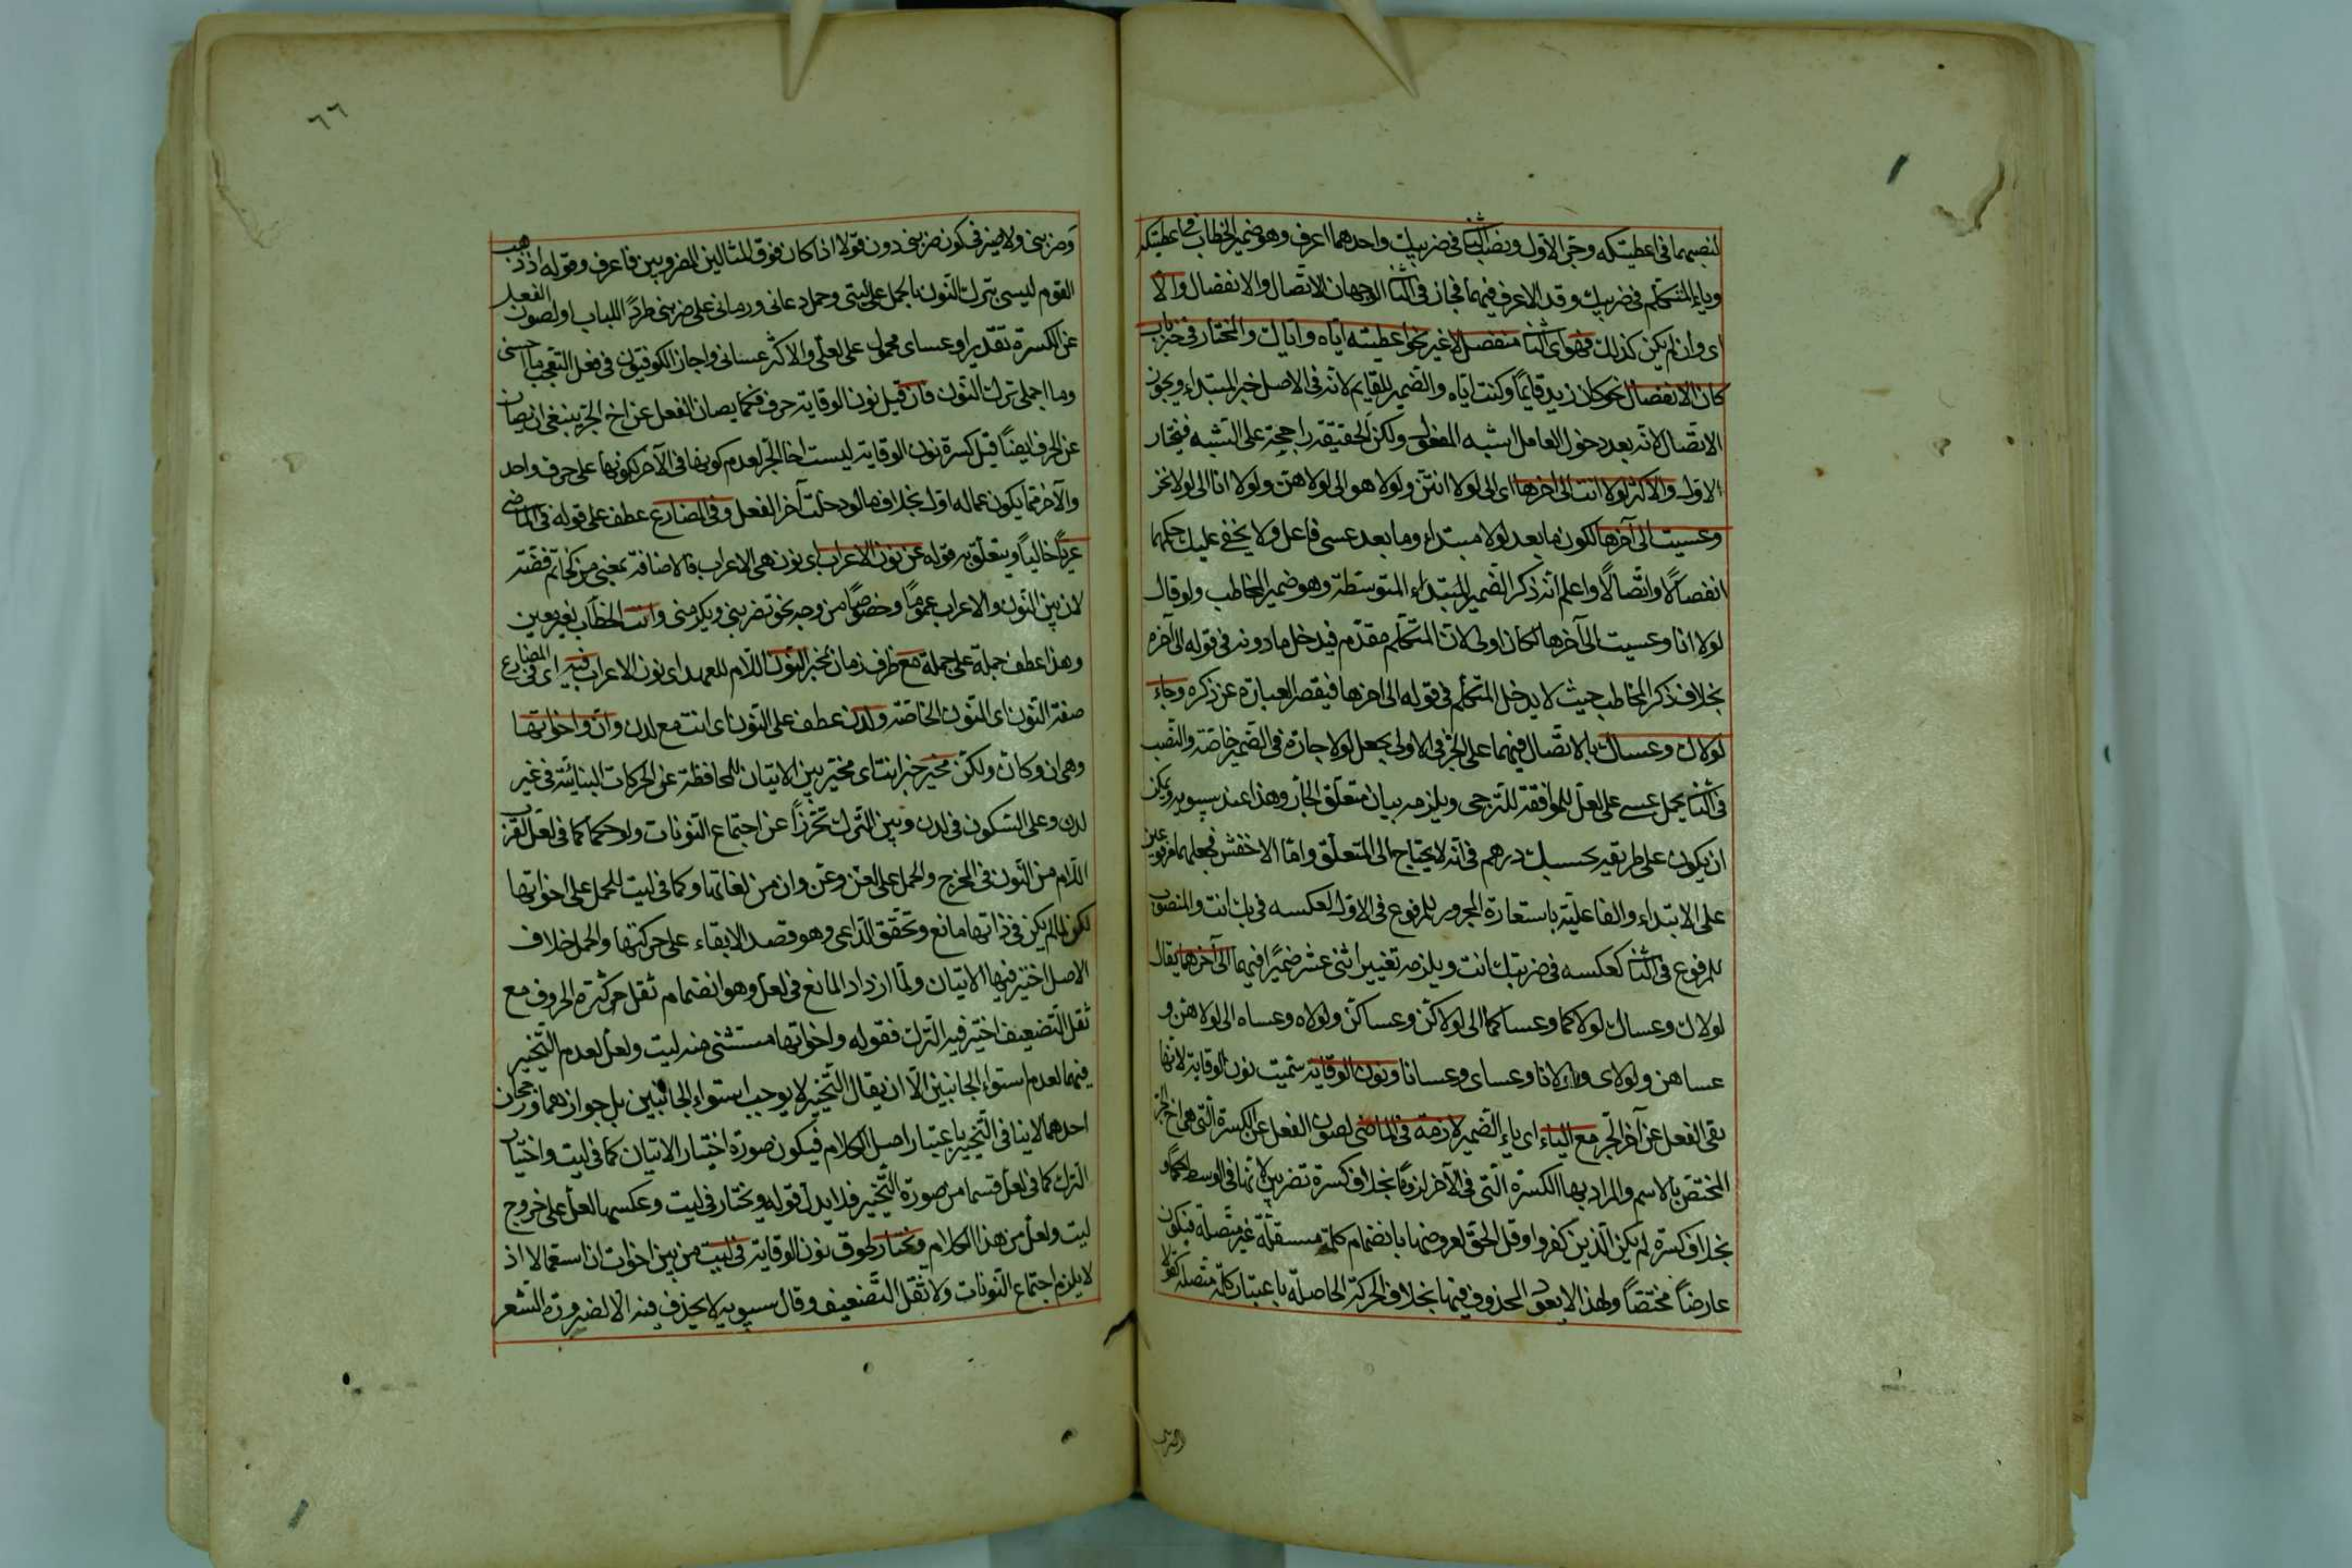 لنصبهما فى اعطيتكه وجر الاول ونصب الثانى فى ضربيك واحدهما اعرف وهو ضمير الخطاب فى اعطيتكه
وياء المتكلم فى ضربيك وقد الاعرف فيهما فجاز فى الثانى الوجهان الاتصال والانفصال والا
اى وان لم يكن كذلك فهو اى الثانى منفصل لا غير نحو اعطيته اياه واياك والمختار فى خبر باب
كان الانفصال نحو كان زيد قايما وكنت اياه والضمير للقايم لانه فى الاصل خبر المبتداء ويجوز
الاتصال لانه بعد دخول العامل اشبه المفعول ولكن الحقيقة راجحة على التشبه فيختار
الاول والاكثر لولا انت الى اخرها اى الى لولا انتن ولولا هو الى لولا هن ولولا انا الى لولا نحن
وعسيت الى آخرها لكون ما بعد لولا مبتداء وما بعد عسى فاعل ولا يخفى عليك حكمهما
انفصالا واتصالا واعلم انه ذكر الضمير للمبتداء المتوسطة وهو ضمير المخاطب ولو قال
لولا انا وعسيت الى آخرها لكان اولى لان المتكلم مقدم فيدخل ما دونه فى قوله الى آخره
بخلاف ذكر المخاطب حيث لا يدخل المتكلم فى قوله الى اخرها فيقصر العبارة عن ذكره وجاء
لولاك وعساك بالاتصال فيهما على الجر فى الاولى بجعل لولا جارة فى الضمير خاصة والنصب
فى الثانى بحمل عسى على لعل للموافقة للترجى ويلزمه بيان متعلق الجار وهذا عند سيبويه ويمكن
ان يكون على طريقة بحسبك درهم فى انه لا يحتاج الى المتعلق واما الاخفش فجعلهما مرفوعين
على الابتداء والفاعلية باستعارة المجرور للمرفوع فى الاول لعكسه فى بك انت والمنصوب
للمرفوع فى الثانى كعكسه فى ضربتك انت ويلزمه تغيير اثنى عشر ضميرا فيهما الى آخرهما يقال
لولاك وعساك لولاكما وعساكما الى لولاكن وعساكن ولولاه وعساه الى لولاهن و
عساهن ولولاى ولولانا وعساى وعسانا ونون الوقاية سميت نون الوقاية لانها
تقى الفعل عن آخر الجر مع الياء اى ياء الضمير لازمة فى الماضى لصون الفعل عن الكسرة التى هى اخ الجر
المختص بالاسم والمراد بها الكسرة التى فى الآخر لزوما بخلاف كسرة تضربين لانها فى الوسط حكما و
بخلاف كسرة لم يكن الذين كفروا وقل الحق لعروضها بانضمام كلمة مستقلة غير متصلة فيكون
عارضا مختصا ولهذا لا يعود المحذوف فيها بخلاف الحركة الحاصلة باعتبار كلمة متصلة كقولا
٦٦
وضربنى ولا ضير فيكون ضربنى دون قولا اذا كان فوق المثالين المضروبين فاعرف وقوله اذ ذهب
القوم ليسى بترك النون بالحمل على ليتى وحمل دعانى ورمانى على ضربنى طردا للباب او لصون الفعل
عن الكسرة تقديرا وعساى محمول على لعلى والاكثر عسانى واجاز الكوفيون فى فعل التعجب ما احسنى
وما اجملى بترك النون فان قيل نون الوقاية حرف فكما يصان الفعل عن اخ الجر ينبغى ان يصان
عن الحرف ايضا قيل كسرة نون الوقاية ليست اخا الجر لعدم كونها فى الآخر لكونها على حرف واحد
والآخر مما يكون عما له اول بخلاف ما لو دخلت آخر الفعل وفى المضارع عطف على قوله فى الماضى
عريا خاليا ويتعلق به قوله عن نون الاعراب اى نون هى الاعراب فالاضافة بمعنى من كخاتم فضة
لان بين النون والاعراب عموما وخصوصا من وجه نحو تضربنى ويكرمنى وانت الخطاب لغير معين
وهذا عطف جملة على جملة مع ظرف زمان لخبر النون اللام للعهد اى نون الاعراب فيه اى فى المضارع
صفة النون اى النون الخاصة ولدن عطف على النون اى انت مع لدن وان واخواتها
وهى ان وكان ولكن مخير خبر انت اى مخير بين الاتيان للمحافظة عن الحركات البنائية فى غير
لدن وعلى السكون فى لدن وبين الترك تحرزا عن اجتماع النونات ولو حكما كما فى لعل لقرب
اللام من النون فى المخرج والحمل على لعن وغن وان من لغاتها وكما فى ليت للحمل على اخواتها
لكن لما لم يكن فى ذاتها مانع وتحقق الداعى وهو قصد الابقاء على حركتها والحمل خلاف
الاصل اختير فيها الاتيان ولما ازداد المانع فى لعل وهو انضمام ثقل كثرة الحروف مع
ثقل التضعيف اختير فيه الترك فقوله واخواتها مستثنى منه ليت ولعل لعدم التخيير
فيهما لعدم استواء الجانبين الا ان يقال التخيير لا يوجب استواء الجانبين بل جوازهما ورجحان
احدهما لا ينافى التخيير باعتبار اصل الكلام فيكون صورة اختيار الاتيان كما فى ليت واختيار
الترك كما فى لعل قسما من صورة التخيير فلا يدل قوله ويختار فى ليت وعكسها لعل على خروج
ليت ولعل من هذا الكلام ويختار لحوق نون الوقاية فى ليت من بين اخوات ان استعمالا اذ
لا يلزم اجتماع النونات ولا ثقل التضعيف وقال سيبويه لا يحذف منه الا لضرورة الشعر